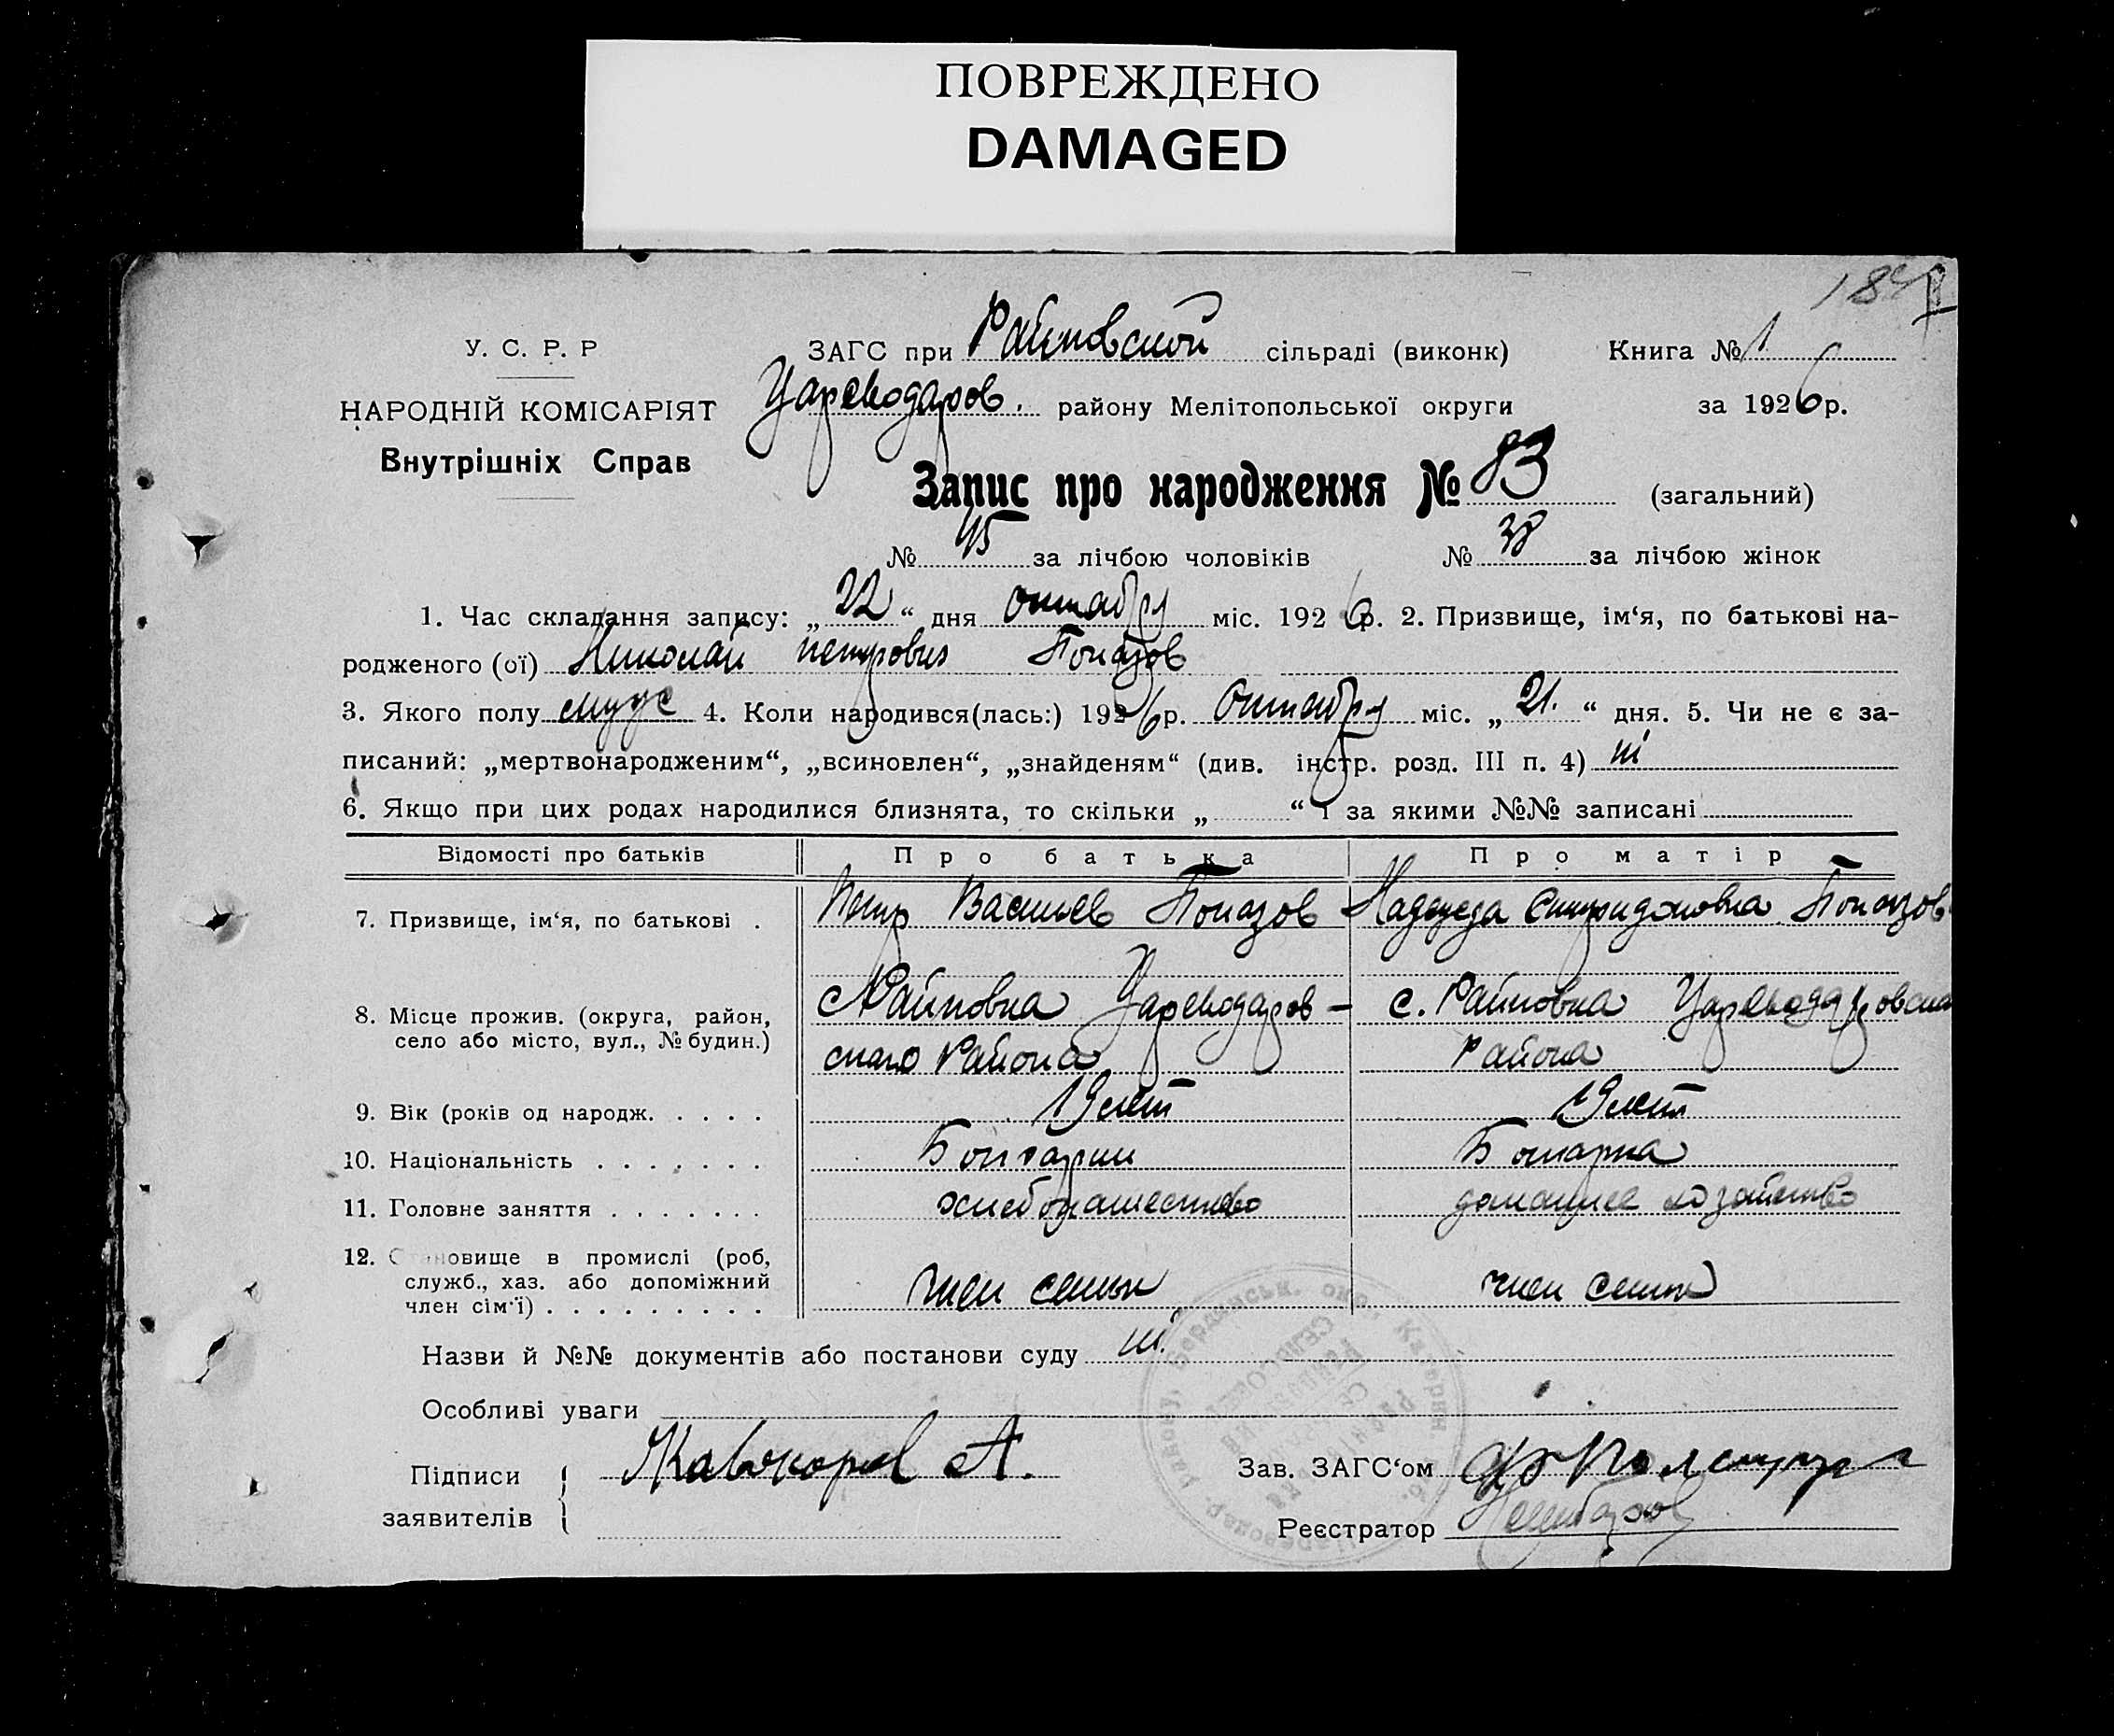 ПОВРЕЖДЕНО
DAMAGED
У. С. Р. Р
НАРОДНІЙ КОМІСАРІЯТ
Внутрішніх Справ
ЗАГС при Райновской сільраді (виконк)
Книга № 1
Цареводаров. району Мелітопольської округи
за 1926 р.
Запис про народження № 83 (загальний)
№ 45 за лічбою чоловіків № 38 за лічбою жінок
1. Час складання запису: „22“ дня октября міс. 1926 р. 2. Призвище, ім‘я, по батькові на-
родженого (ої) Николай петрович Попазов
3. Якого полу муж 4. Коли народився(лась:) 1926 р. Октября міс. „21.“ дня. 5. Чи не є за-
писаний: „мертвонародженим“, „всиновлен“, „знайденям“ (див. інстр. розд. III п. 4) ні
6. Якщо при цих родах народилися близнята, то скільки „ “ і за якими №№ записані
Відомості про батьків Про батька Про матір
7. Призвище, ім‘я, по батькові . Петр Васильев Попазов Надежда Спиридоновна Попазов
8. Місце прожив. (округа, район, с Райновка Цареводаров- с. Райновка Цареводаровска
село або місто, вул., № будин.) ского Района Района
9. Вік (років од народж. . . . . 19 лет 19 лет
10. Національність . . . . . . . Болгарин Болгарка
11. Головне заняття . . . . . . . хлебопашество домашнее хозяйство
12. Становище в промислі (роб,
служб., хаз. або допоміжний член семьи член семьи
член сім‘ї) . . . . . . . . .
Назви й №№ документів або постанови суду ні.
Особливі уваги
Підписи А.
заявителів
Зав. ЗАГС‘ом
Реєстратор